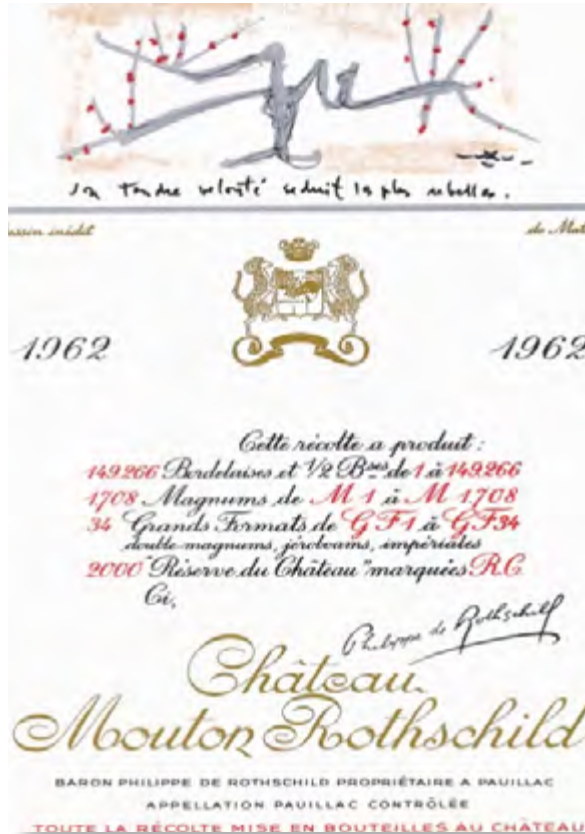 son tendre velouté séduit les plus rebelles.
dessin inédit de Mat
1962 1962
Cette récolte a produit :
149.266 Bordelaises et 1/2 Bses de 1 à 149.266
1708 Magnums de M 1 à M 1708
34 Grands Formats de G F 1 à G F 34
double-magnums, jéroboams, impériales
2000 "Réserve du Château" marquées R.C.
Ci,
Philippe de Rothschild
Château
Mouton Rothschild
BARON PHILIPPE DE ROTHSCHILD PROPRIÉTAIRE A PAUILLAC
APPELLATION PAUILLAC CONTRÔLÉE
TOUTE LA RÉCOLTE MISE EN BOUTEILLES AU CHÂTEAU